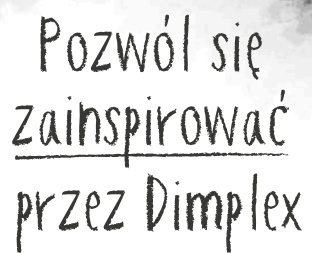 Pozwól się
zainspirować
przez Dimplex